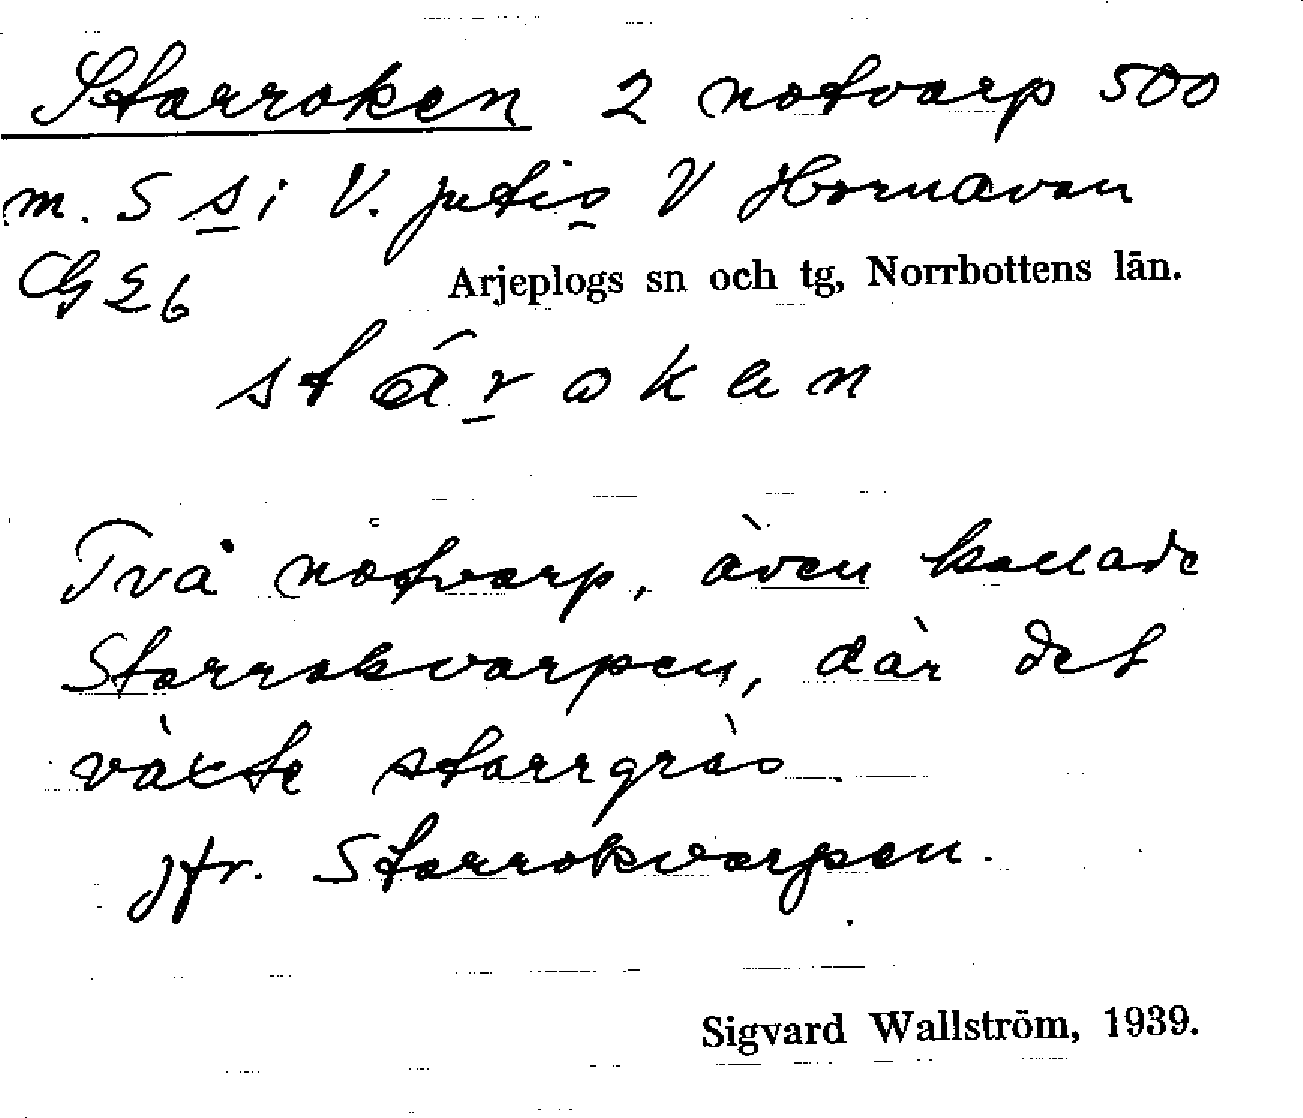 Starroken 2 notvarp 500
m. S s i V. jutis V Hornavan
CG E6
Arjeplogs sn och tg, Norrbottens län.
stárokan
Två notvarp, även kallade
Starrokvarpen, där det
växte starrgräs.
jfr. Starrokvarpen.
Sigvard Wallström, 1939.